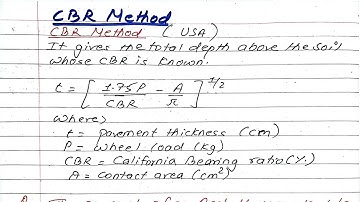 CBR Method
CBR Method (USA)
It gives the total depth above the soil
whose CBR is known.
t = [ 1.75P / CBR - A / π ]^1/2
where,
t = pavement thickness (cm)
P = wheel load (kg)
CBR = California Bearing ratio (%)
A = contact area (cm²)